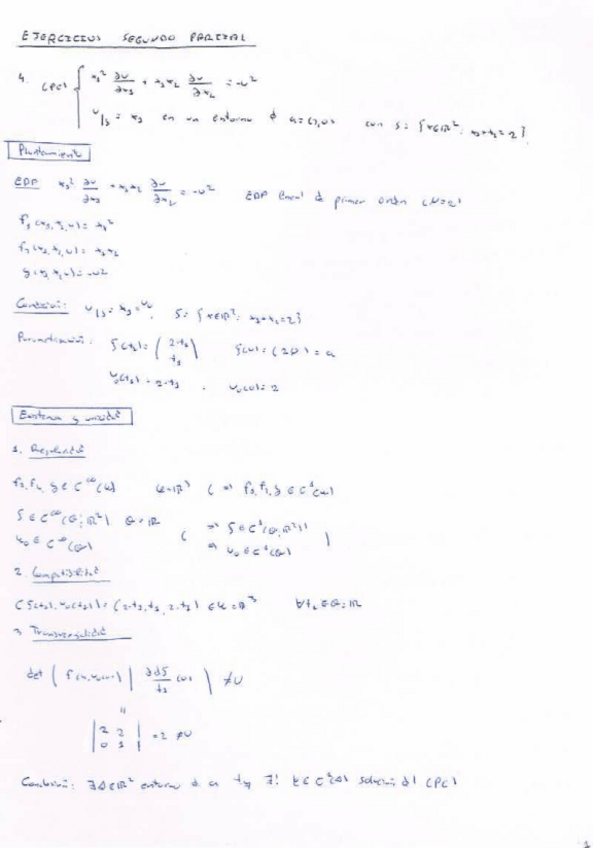 EJERCICIOS SEGUNDO PARCIAL
4. (PC) { x₁² ∂u/∂x₁ + x₁x₂ ∂u/∂x₂ = -u²
u|s = x₁ en un entorno d a=(2,0) con S: {x∈ℝ²: x₁+x₂=2}
Planteamiento
EDP x₁² ∂u/∂x₁ + x₁x₂ ∂u/∂x₂ = -u² EDP lineal de primer orden (N=2)
f₁(x₁,x₂,u) = x₁²
f₂(x₁,x₂,u) = x₁x₂
g(x₁,x₂,u) = -u²
Condición: u|s = x₁ = u₀, S: {x∈ℝ²: x₁+x₂=2}
Parametrización: ζ(t₁) = (2-t₁ t₁) ζ(0) = (2,0) = a
u₀(t₁) = 2-t₁, u₀(0) = 2
Existencia y unicidad
1. Regularidad
f₁, f₂, g ∈ C^∞(U) U=ℝ³ (⇒ f₁, f₂, g ∈ C¹(U))
ζ ∈ C^∞(Θ; ℝ²) Θ=ℝ (⇒ ζ ∈ C¹(Θ; ℝ²))
u₀ ∈ C^∞(Θ) ⇒ u₀ ∈ C¹(Θ)
2. Compatibilidad
(ζ(t₁), u₀(t₁)) = (2-t₁, t₁, 2-t₁) ∈ U = ℝ³ ∀t₁∈Θ=ℝ
3. Transversalidad
det ( | (0) ) ≠0
=
| 2 2 | = 2 ≠0
0 1
Conclusión: ∃ ∈ℝ² entorno d a ∃! ∈ C solución del (PC)
1